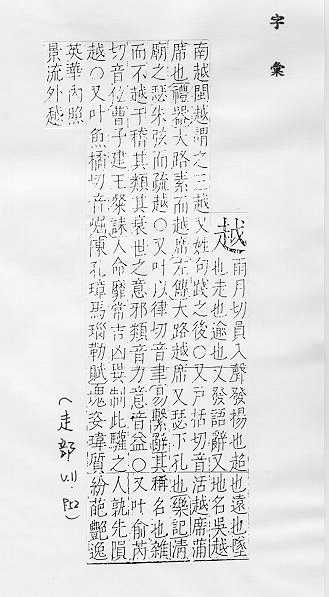 字彙
越
雨月切員入聲發楊也超也遠也墜
也走也逾也又發語辭又地名吳越
南越閩越謂之三越又姓句踐之後○又戸括切音活越席蒲
席也禮器大路素而越席左傳大路越席又瑟下孔也樂記清
廟之瑟朱弦而疏越○又叶以律切音聿易繫辭其稱名也雜
而不越于稽其類其衰世之意邪類音力意音益○又叶俞芮
切音位曹子建王粲誄人命靡常吉凶異制此驩之人孰先隕
越○又叶魚橘切音崛陳孔璋馬瑙勒賦瑰姿瑋質紛葩艷逸
英華內照
景流外越
(走部